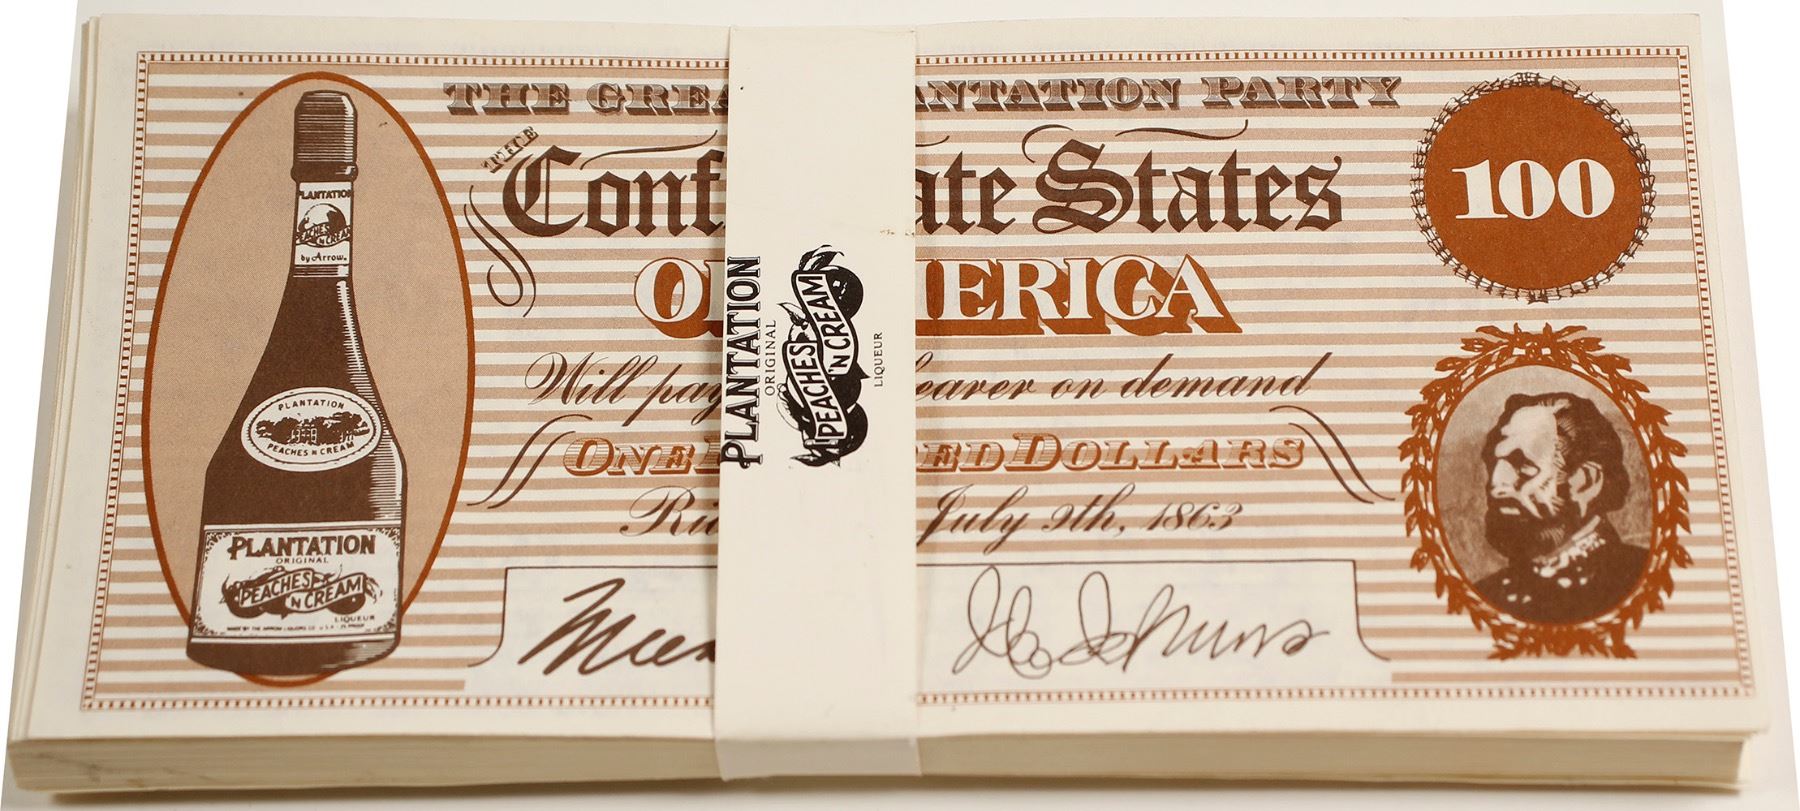 THE GREA ANTATION PARTY
THE
Conf ate States
O ERICA
Will pay earer on demand
ONE ED DOLLARS
July 9th, 1863
100
PLANTATION
PEACHES
'N CREAM
by Arrow
PLANTATION
PEACHES N CREAM
PLANTATION
ORIGINAL
PEACHES
'N CREAM
LIQUEUR
PLANTATION
ORIGINAL
PEACHES
'N CREAM
LIQUEUR